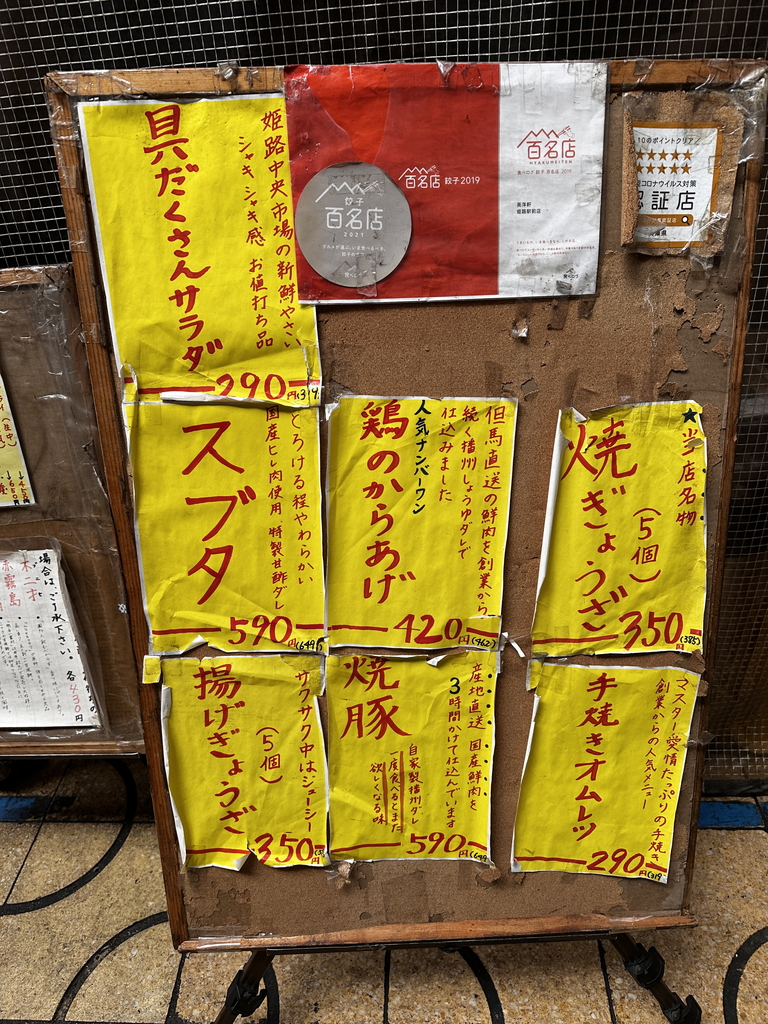 姫路中央市場の新鮮やさい
シャキシャキ感 お値打ち品
具だくさんサラダ
290円(319
百名店
餃子2019
餃子
百名店
2021
食べログ
百名店
HYAKUMEITEN
食べログ 餃子 百名店 2019
姫路駅前店
食べログ
10のポイントクリア
コロナウイルス対策
認証店
とろける程やわらかい
国産ヒレ肉使用 特製甘酢ダレ
スブタ
590円(649
但馬直送の鮮肉を創業から
続く播州しょうゆダレで
仕込みました
人気ナンバーワン
鶏のからあげ
420円(462)
★当店名物
焼ぎょうざ
(5個)
350円(385)
サクサク中はジューシー
揚げぎょうざ
(5個)
350円
産地直送 国産鮮肉を
3時間かけて仕込んでいます
焼豚
自家製播州ダレ
一度食べるとまた
欲しくなる味
590円(649
マスター愛情たっぷりの手焼き
創業からの人気メニュー
手焼きオムレツ
290円(319
場合はご了承下さい。
赤霧島
各430円